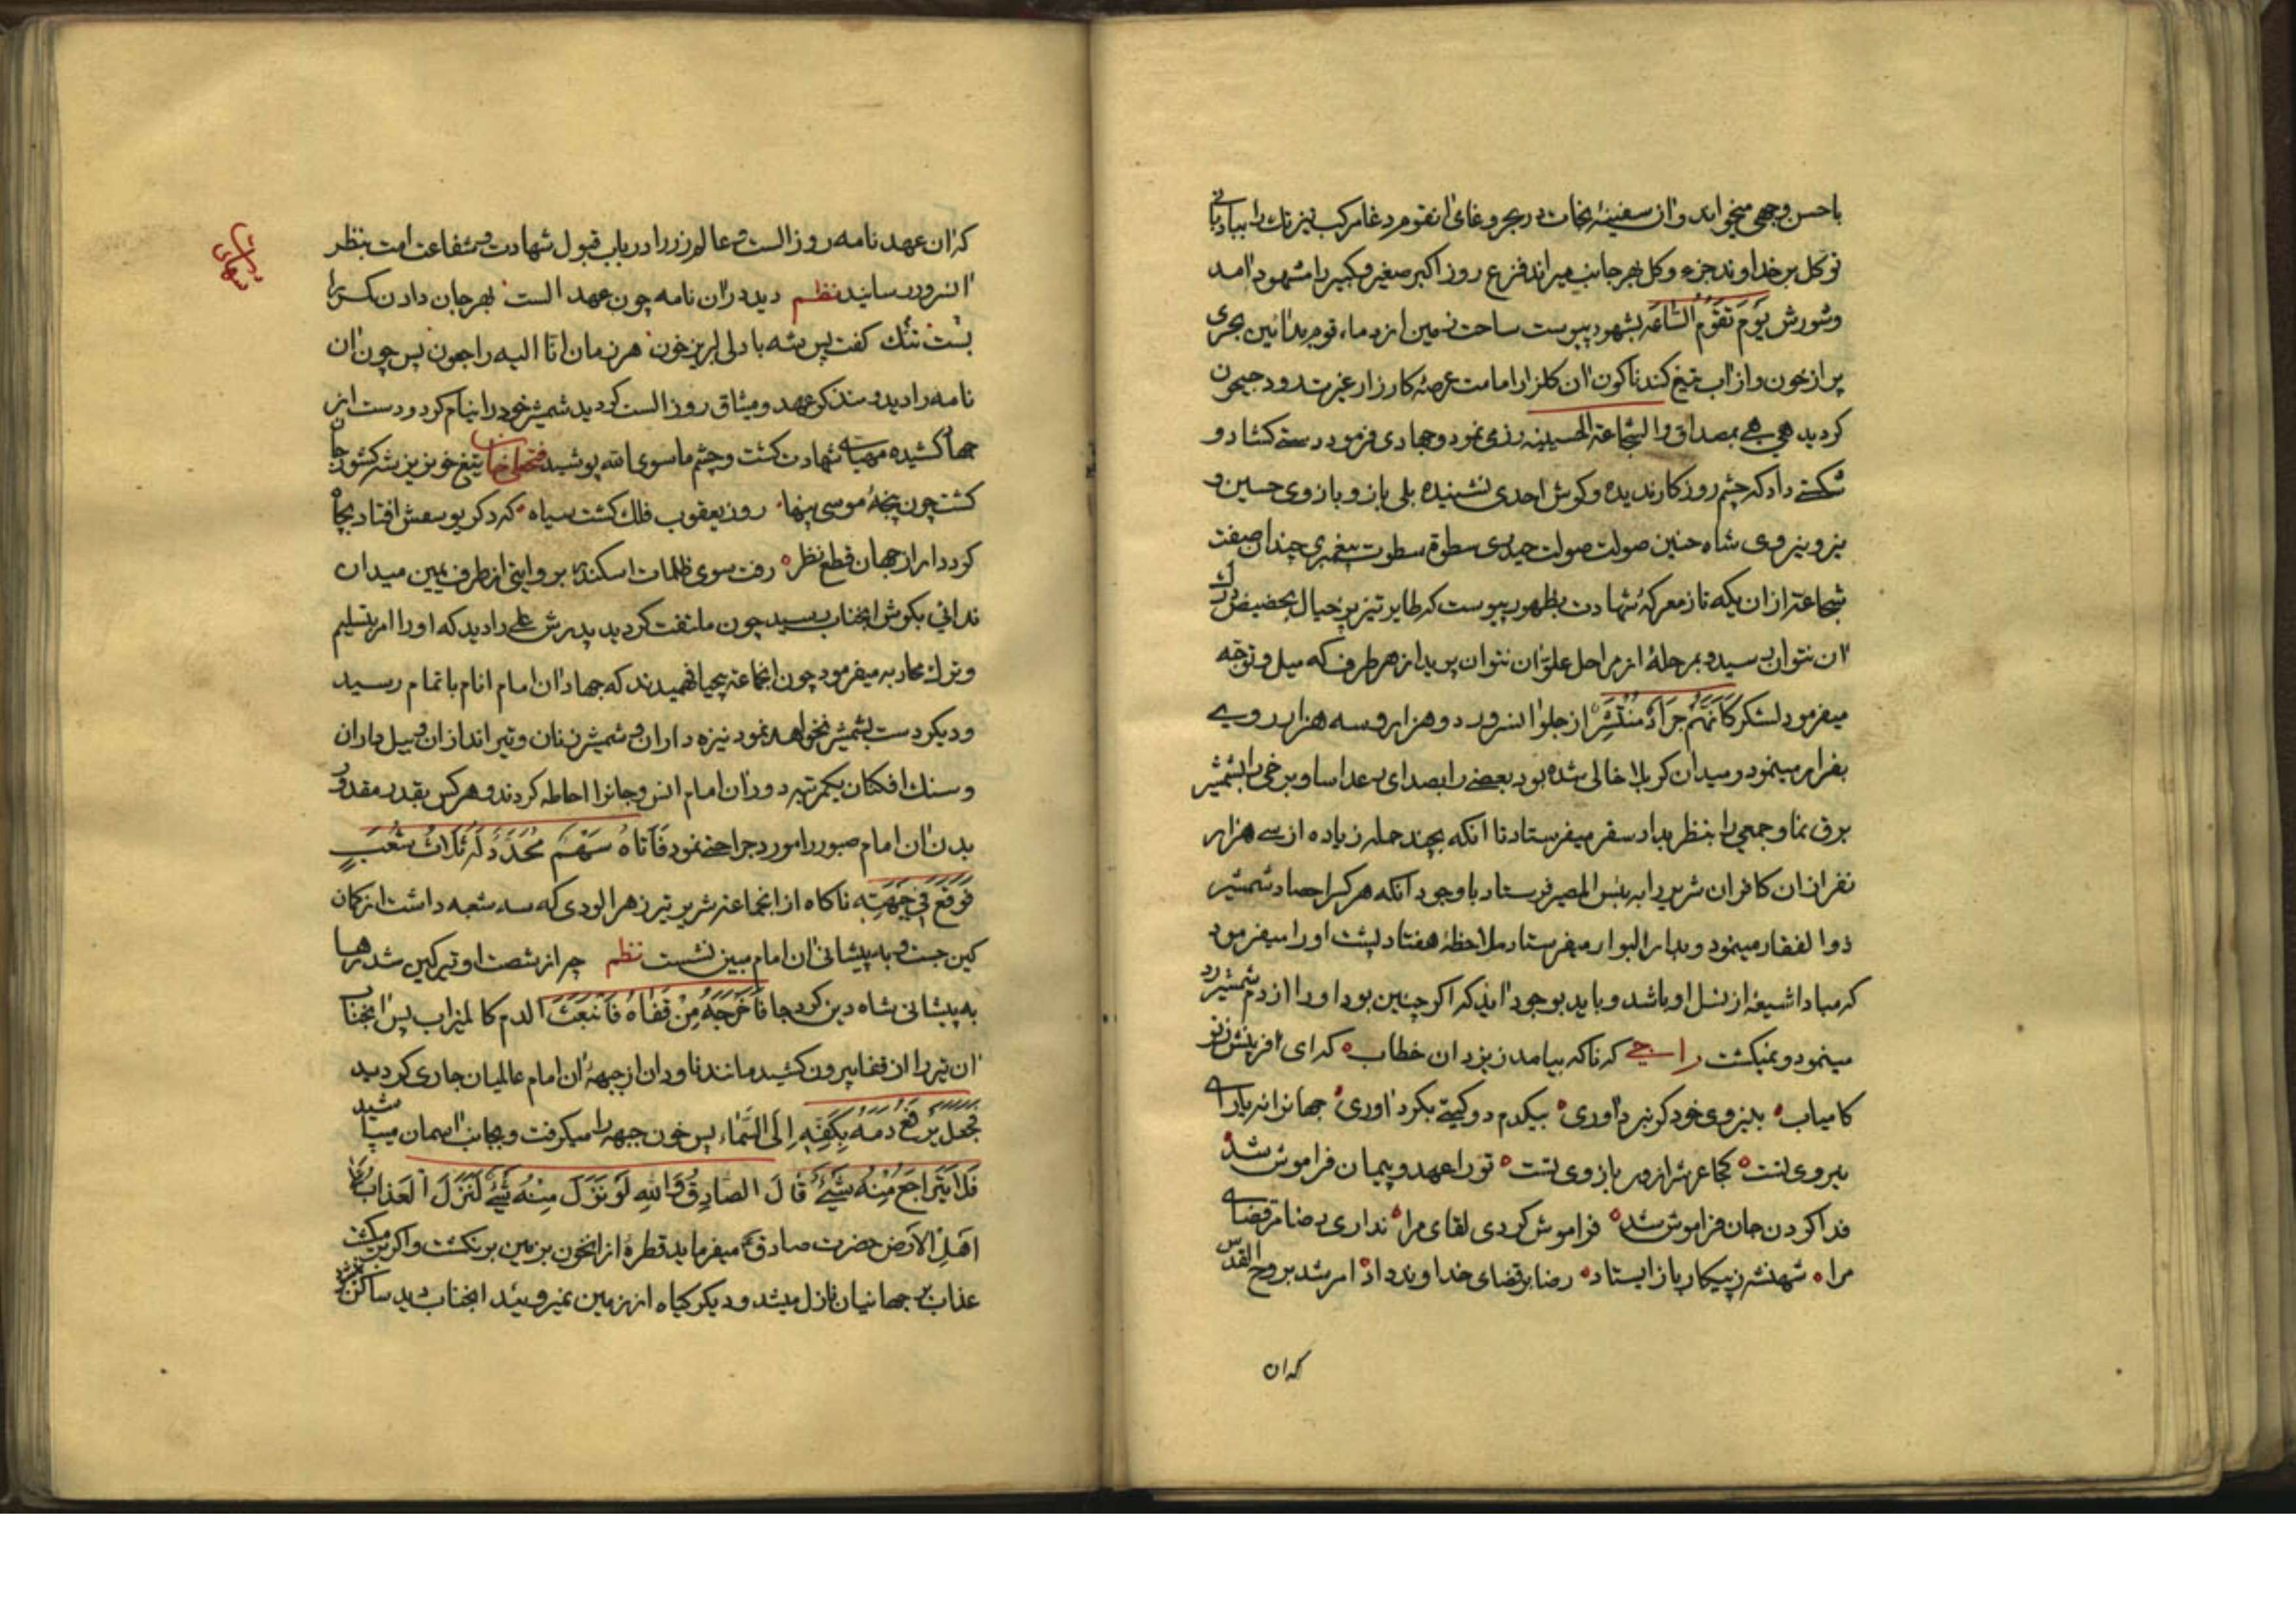 باحسن وجهی میخواند و از سفینهٔ نجات در بحر وغای انقوم دغا مرکب تیزتك را ببادبانی
توکل بر خداوند جزء و کل بهر جانب میراند فزع روز اکبر صغیر و کبیر را مشهود امد
و شورش یَوْمَ تَقُوْمُ السَّاعَه بشهود پیوست ساحت زمین از دماء قوم بدائین بحری
پر از خون و از اب تیغ کند ناکون ان کلزار امامت عرصهٔ کارزار غیرت رود جیحون
کردید هی هی بمصداق والشجاعة الحسینیه رزمی نمود و جهادی فرمود دستی کشاد و
شکستی داد که چشم روزکار ندیده و کوش احدی نشنیده بلی بازو بازوی حسین و
نیرو نیروی شاه حنین صولت صولت حیدری سطوة سطوت پیغمبری چندان صفت
شجاعة از ان یکه تاز معرکهٔ شهادت بظهور پیوست که طایر تیز پر خیال بحضیض درك
ان نتوان رسید و بمرحلهٔ از مراحل علوّ ان نتوان پرید از هر طرف که میل و توجّه
میفرمود لشکر کَاَنَّهُمْ جَرَادٌ مُنْتَشِرٌ از جلو انسرور دو هزار و سه هزار رو به
بفرار مینمود و میدان کربلا خالی شده بود بعضی را بصدای رعد اسا و برخی را بشمشیر
برق نما و جمعی را بنظر بدار سقر میفرستاد تا انکه بچند حمله زیاده از سی هزار
نفر از ان کافران شریر را به بئس المصیر فرستاد با وجود انکه هر کرا حصاد شمشیر
ذوالفقار مینمود و بدار البوار میفرستاد ملاحظهٔ هفتاد پشت او را میفرمود
که مبادا شیعهٔ از نسل او باشد و باید بوجود اید که اکر چنین بود او را از دم شمشیر رد
مینمود و نمیکشت راجی که ناکه بیامد ز یزدان خطاب که ای افرینش ز تو
کامیاب بنیروی خود کر نبرد اوری بیکدم دو کیتی بکرد اوری جهانرا نه یارای
نیروی تست کجا عرش از ور بازوی تست تو را عهد و پیمان فراموش شد
فدا کردن جان فراموش شد فراموش کردی لقای مرا نداری رضا مر قضای
مرا شهنشه ز پیکار باز ایستاد رضا بر قضای خداوند داد امر شد بروح القدس
که ان
که ان عهدنامه روز الست و عالم ذر را در باب قبول شهادت و شفاعت امت بنظر
انسرور رسانید نظم دید در ان نامه چون عهد الست بهر جان دادن کمر را
بست تنك کفت پس شه با دلی لبریز خون هر زمان انا الیه راجعون پس چون ان
نامه را دید و متذکر عهد و میثاق روز الست کردید شمشیر خود را بنیام کرد و دست از
جهان کشیده مهیای شهادت کشت و چشم ماسوی الله پوشید فتحعلی خان تیغ خونریز شه کشور جان
کشت چون پنجهٔ موسی پنهان روز یعقوب فلك کشت سیاه که دکر یوسفش افتاد بچاه
کرد دارا ز جهان قطع نظر رفت سوی ظلمات اسکندر بروایتی از طرف یمین میدان
ندائی بکوش انجناب رسید چون ملتفت کردید پدرش علی را دید که او را امر بتسلیم
و ترك محاربه میفرمود چون انجماعة بیحیا فهمیدند که جهاد ان امام انام باتمام رسید
و دیکر دست بشمشیر نخواهد نمود نیزه داران و شمشیر زنان و تیراندازان و بیل داران
و سنك افکنان یکمرتبه دور ان امام انس و جانرا احاطه کردند و هر کس بقدر مقدور
بدن ان امام صبور را مورد جراحتی نمود فَاَتَاهُ سَهْمٌ مُحَدَّدٌ لَهُ ثَلَاثُ شُعَبٍ
فَوَقَعَ فِی جِبْهَتِهِ ناکاه از انجماعة شریر تیر زهر الودی که سه شعبه داشت از کمان
کین جست و به پیشانی ان امام مبین نشست نظم چه از شصت او تیر کین شد رها
به پیشانی شاه دین کرد جا فَاَخْرَجَهُ مِنْ قَفَاهُ فَانْبَعَثَ الدم کالمیزاب پس انجناب
ان تیر را از قفا بیرون کشید مانند ناودان از جبههٔ ان امام عالمیان جاری کردید
فجعل یَرْفَعُ دَمَهُ بِکَفِّهِ اِلَی السَّمَاء پس خون جبهه را میکرفت و بجانب اسمان میپاشید
فَلَا یَتَرَاجَعُ مِنْهُ شَیْءٌ قَالَ الصَّادِقُ وَاللهِ لَوْ نَزَلَ مِنْهُ شَیْءٌ لَنَزَلَ الْعَذَابُ عَلَی
اَهْلِ الْاَرْضِ حضرت صادق میفرماید قطرهٔ از انخون بزمین برنکشت و اکر برمیکشت
عذاب بر جهانیان نازل میشد و دیکر کیاه از زمین نمیروئید انجناب دید ساکن نمیشود